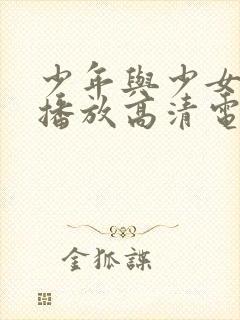 少年與少女
播放高清電
金狐諜